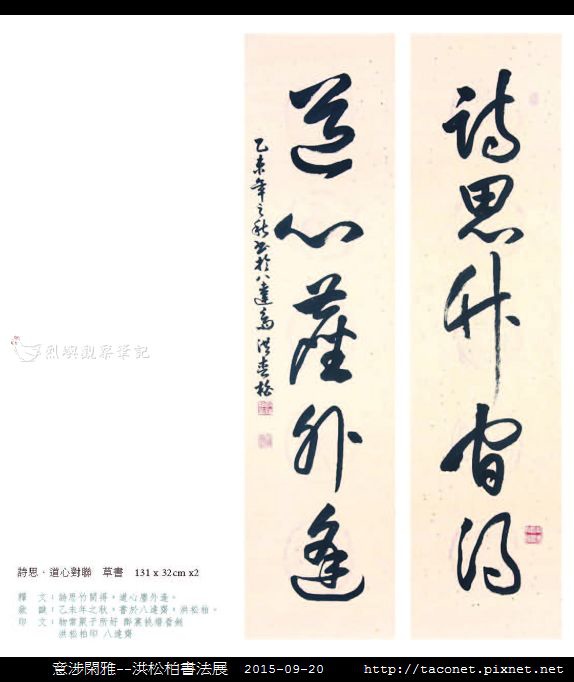 詩思竹間得
道心塵外逢
乙未年之秋書於八達齋 洪松柏
烈嶼觀察筆記
詩思．道心對聯　草書　131 x 32cm x2
釋　文：詩思竹間得，道心塵外逢。
款　識：乙未年之秋，書於八達齋，洪松柏。
洪松柏印 八達齋
意涉閑雅--洪松柏書法展　2015-09-20　http://taconet.pixnet.net/blog